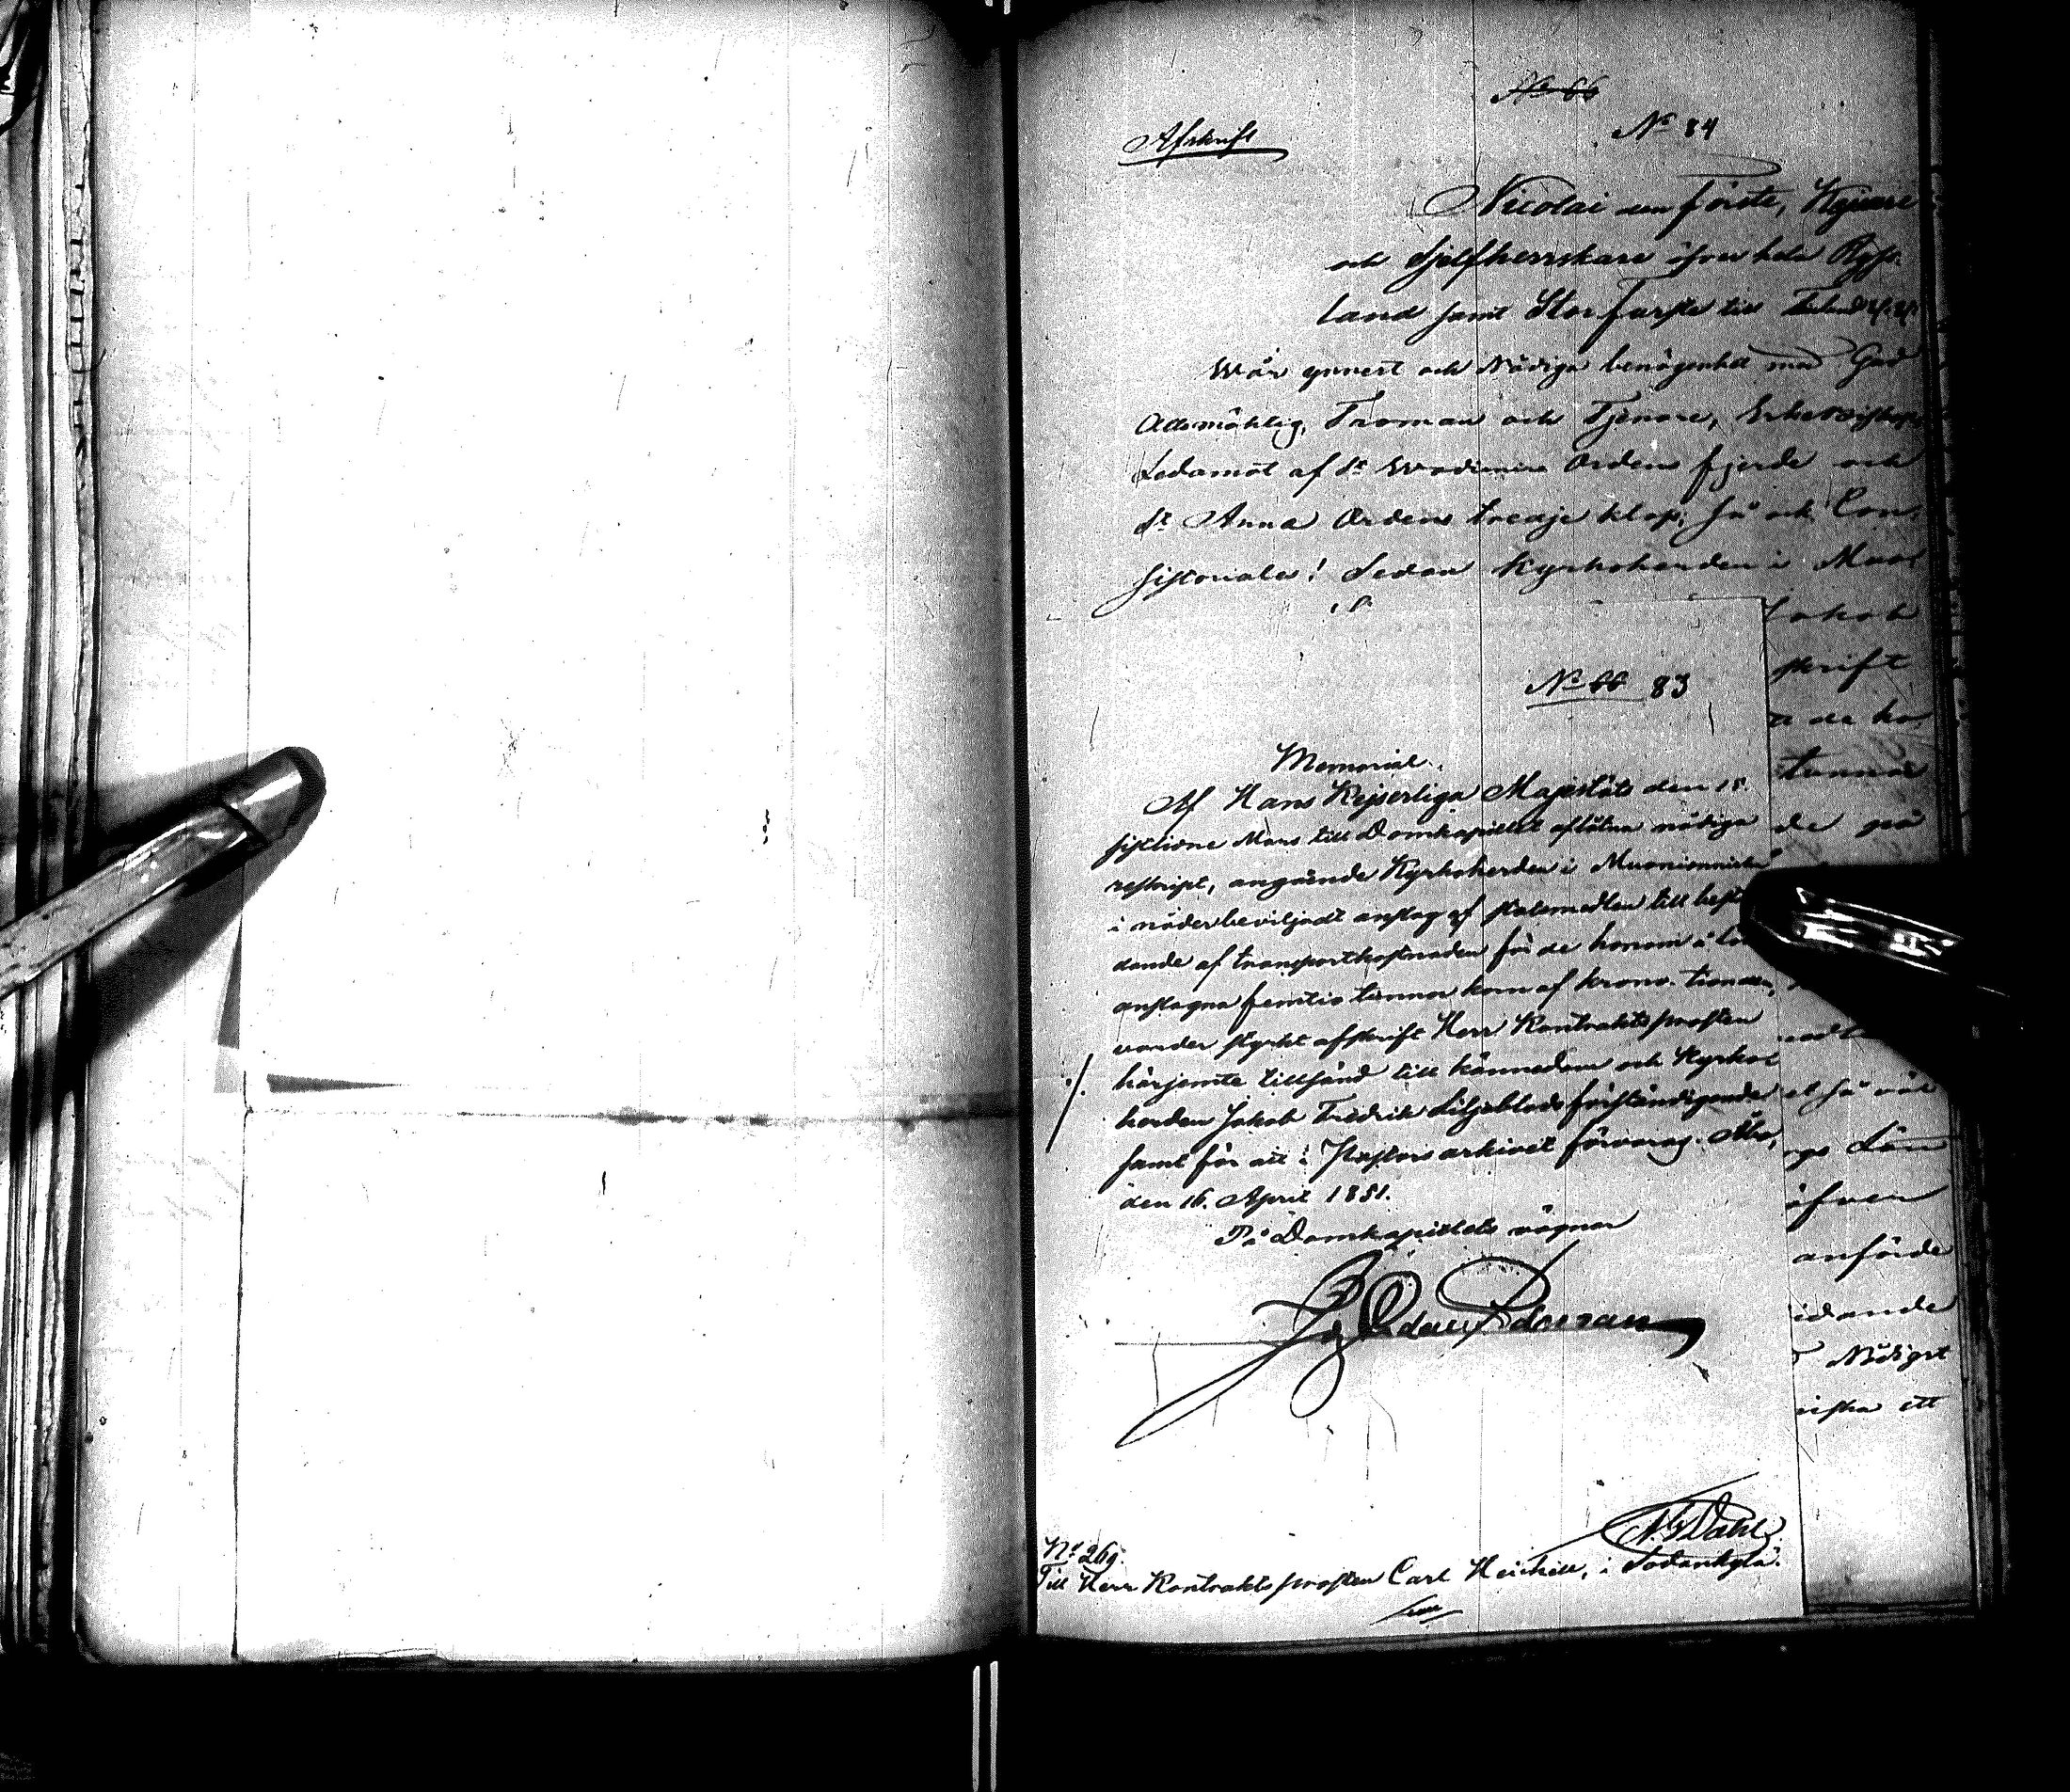 N:o 66
N:o 84
Afskrift
Nicolai den förste, Kejsare
och Sjelfherrskare öfver hela Ryss-
land samt Storfurste till Finland
Wår ynnest och Nådiga benägenhet med Gud
Allsmäktig, Troman och Tjenare, Erkebiskop,
Ledamot af S:t Wladimirs Orden fjerde och
S:t Anna Orden tredje klass, så ock Con-
sistoriales! Sedan Kyrkoherden i Muo
Jakob
skrift
de ho
tunnor
de på
N:o 66 83
Memorial.
Af Hans Kejserliga Majestäts den 18
sistlidne Mars till Domkapitlet aflåtna nådiga
reskript, angående Kyrkoherden i Muonionniska
i nåder beviljadt anslag af statsmedlen till bestri
dande af transportkostnaden för de honom i lön
anslagna femtio tunnor korn af krono-tionden,
varder styrkt afskrift Herr Kontraktsprosten
härjemte tillsänd till kännedom och Kyrko-
herden Jakob Fredrik Liljeblads förständigande
samt för att i Pastors arkivet förvaras. Åbo,
den 16. April 1851.
På Domkapitlets vägnar
el så väl
Län
äfven
anförde
idande
Nådigst
ett
N:o 269.
Till Herr Kontraktsprosten Carl Heickell, i Sodankylä.